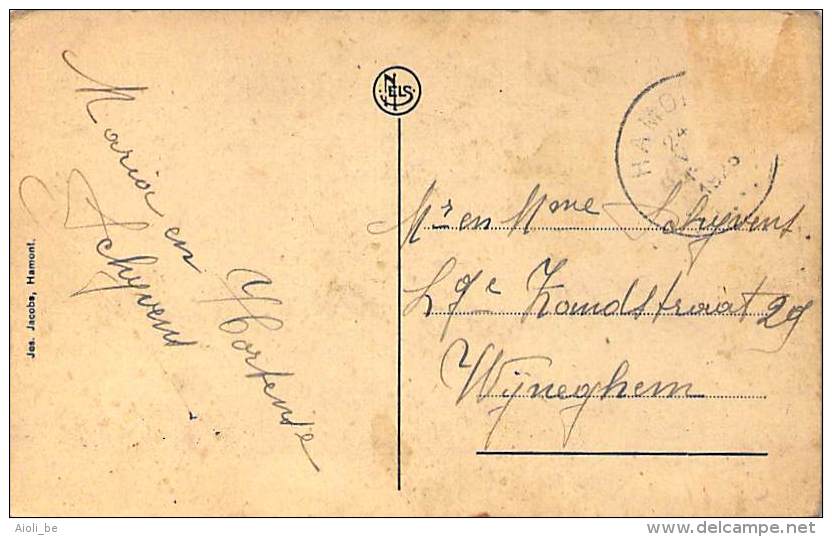 Maria en Hortense
Schyvens
Jos. Jacobs, Hamont.
NELS
HAMO
24
Mr en Mme Schyvens
Lge Zandstraat 29
Wÿneghem
Aioli_be
delcampe.net